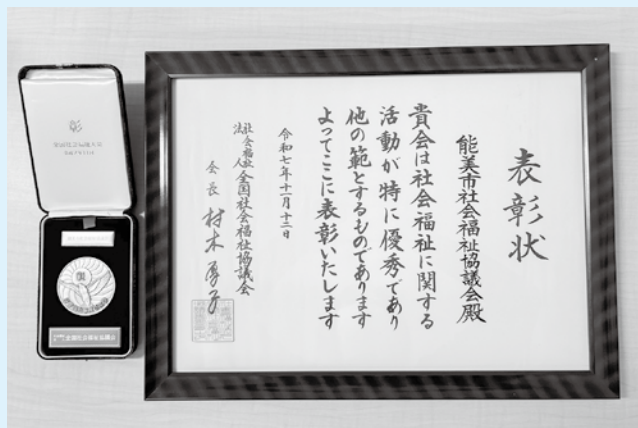 表彰状
能美市社会福祉協議会殿
貴会は社会福祉に関する
活動が特に優秀であり
他の範とするものであります
よってここに表彰いたします
令和七年十一月十二日
社会福祉法人 全国社会福祉協議会
会長 村木厚子
全国社会福祉協議会